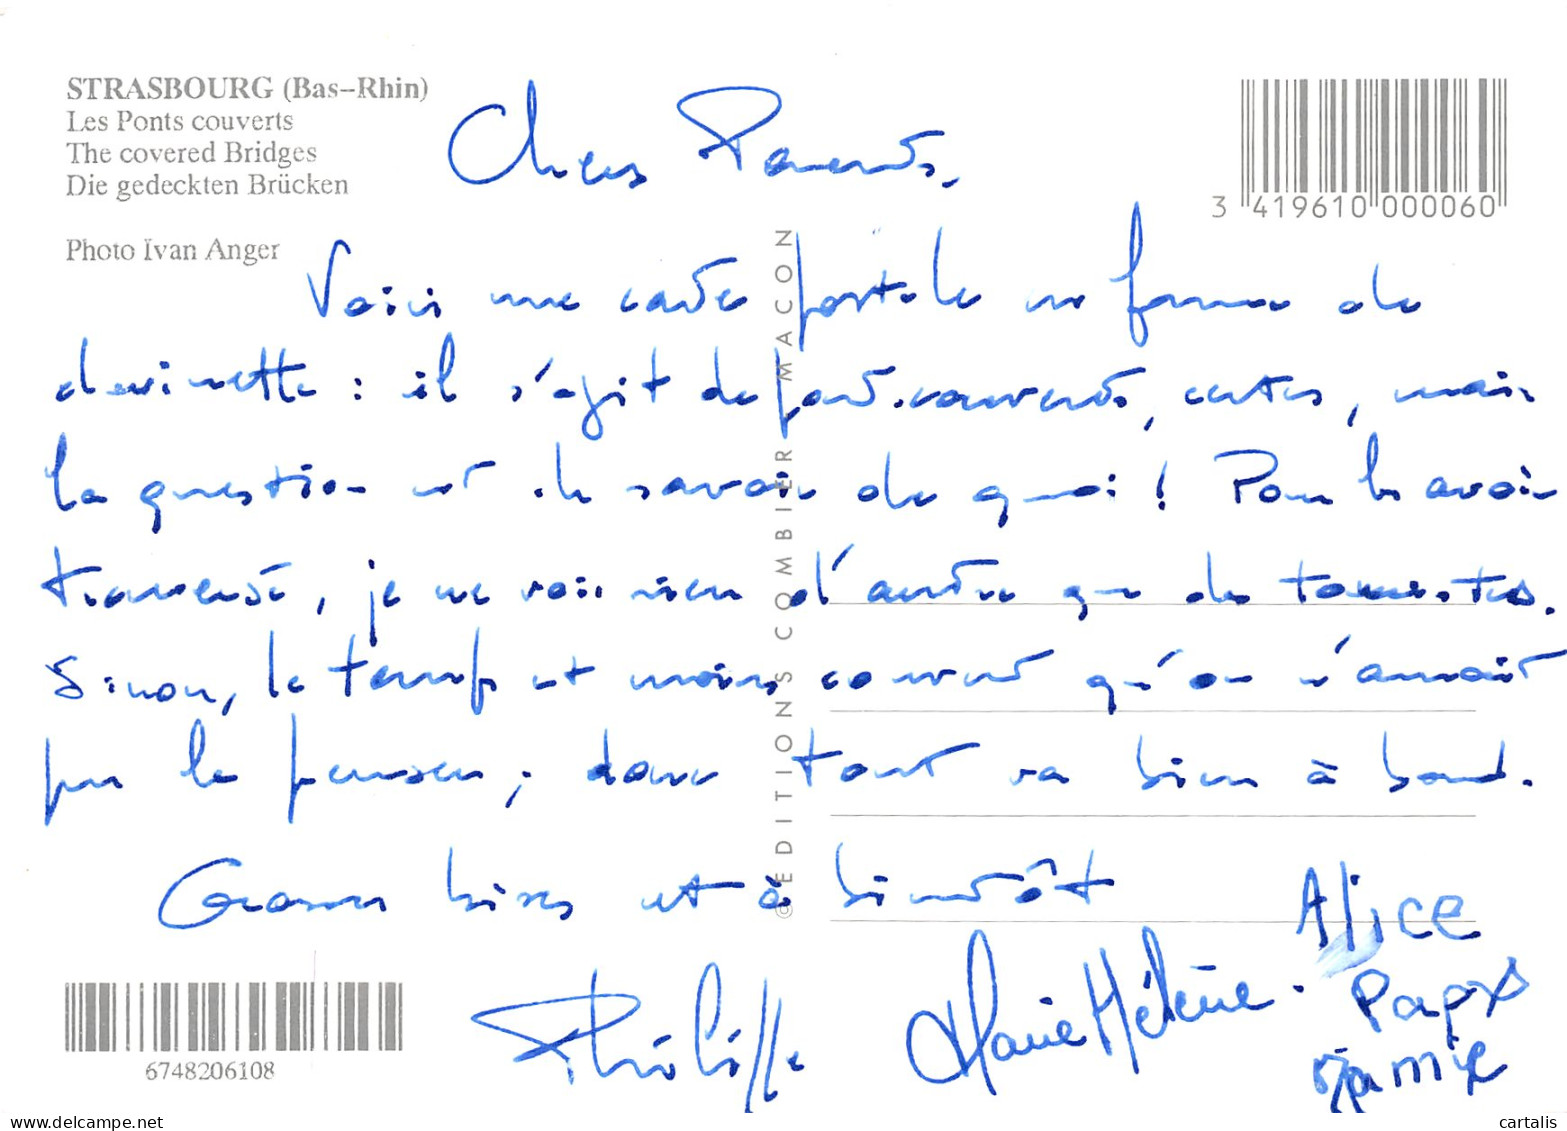 STRASBOURG (Bas-Rhin)
Les Ponts couverts
The covered Bridges
Die gedeckten Brücken
Photo Ivan Anger
3 419610 000060
Chers Parents,
Voici une carte postale en forme de
devinette : il s'agit de ponts couverts, certes, mais
la question est de savoir de quoi ! Pour les avoir
traversés, je ne vois rien d'autre que des touristes.
Sinon, le temps est moins couvert qu'on n'aurait
pu le penser ; donc tout va bien à bord.
Grosses bises et à bientôt
Alice
Philippe
Marie Hélène.
Papy
mamie
© EDITIONS COMBIER MACON
6748206108
www.delcampe.net
cartalis